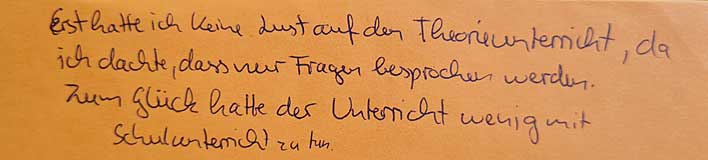 Erst hatte ich keine Lust auf den Theorieunterricht, da
ich dachte, dass nur Fragen besprochen werden.
Zum Glück hatte der Unterricht wenig mit
Schulunterricht zu tun.